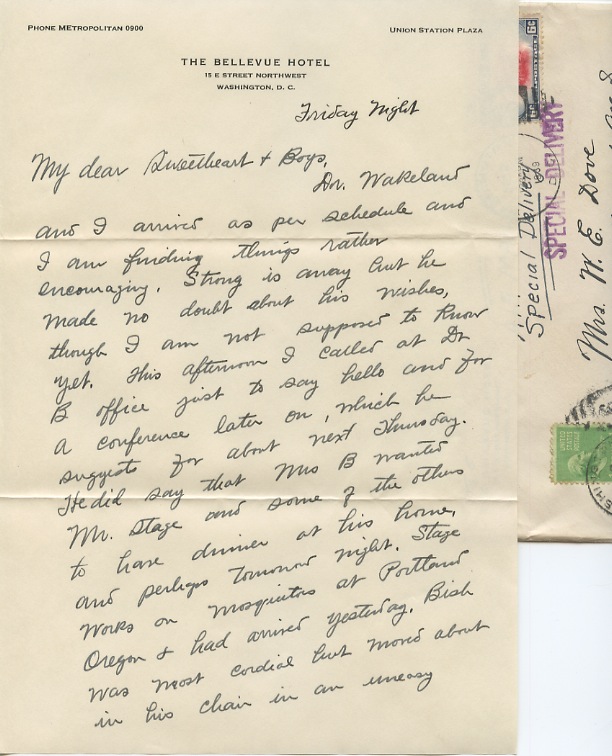 PHONE METROPOLITAN 0900
UNION STATION PLAZA
THE BELLEVUE HOTEL
15 E STREET NORTHWEST
WASHINGTON, D. C.
Friday Night
My dear Sweetheart & Boys,
Dr. Wakeland
and I arrived as per schedule and
I am finding things rather
encouraging. Strong is away but he
made no doubt about his wishes,
though I am not supposed to know
yet. This afternoon I called at Dr
B office just to say hello and for
a conference later on, which he
suggests for about next Thursday.
He did say that Mrs B wanted
Mr. Stage and some of the others
to have dinner at his home,
and perhaps tomorrow night. Stage
works on mosquitos at Portland
Oregon & had arrived yesterday. Bish
was most cordial but moved about
in his chair in an uneasy
6¢
6¢
SPECIAL DELIVERY
Special Delivery
Mrs. W. E. Dove
UNITED
STATES
POSTAGE